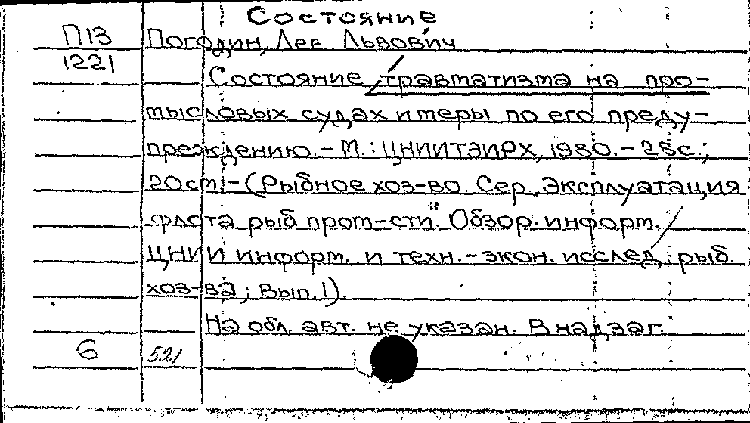 Состояние
П13 Погодин, Лев Львович
1221 Состояние травматизма на про-
мысловых судах и меры по его преду-
преждению. - М.: ЦНИИТЭИРХ, 1980. - 28с.;
20см. - (Рыбное хоз-во. Сер. Эксплуатация
флота рыб пром-сти. Обзор. информ.
ЦНИИ информ. и техн.-экон. исслед. рыб.
хоз-ва; Вып. 1).
На обл. авт. не указан. В надзаг.
6 521